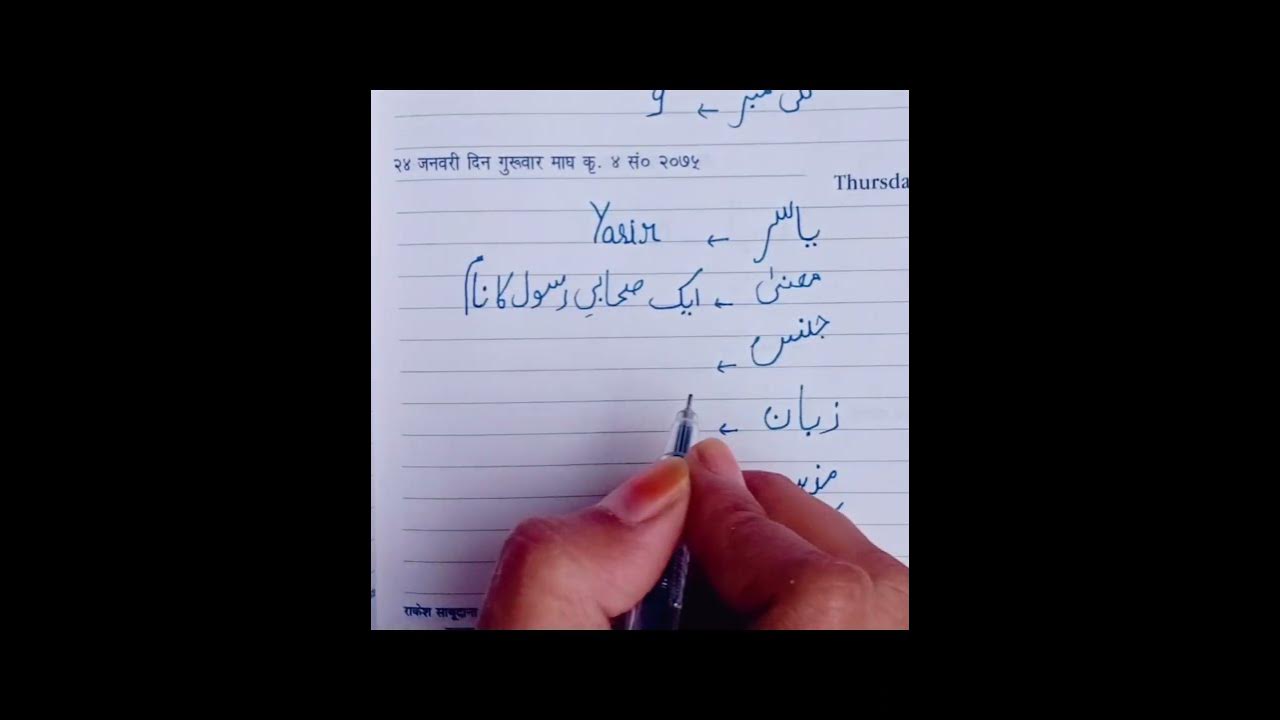 ← 9
२४ जनवरी दिन गुरूवार माघ कृ. ४ सं० २०७५
Thursda
یاسر ← Yasir
معنیٰ ← ایک صحابیِ رسول کا نام
جنس ←
زبان ←
राकेश साबूदाना